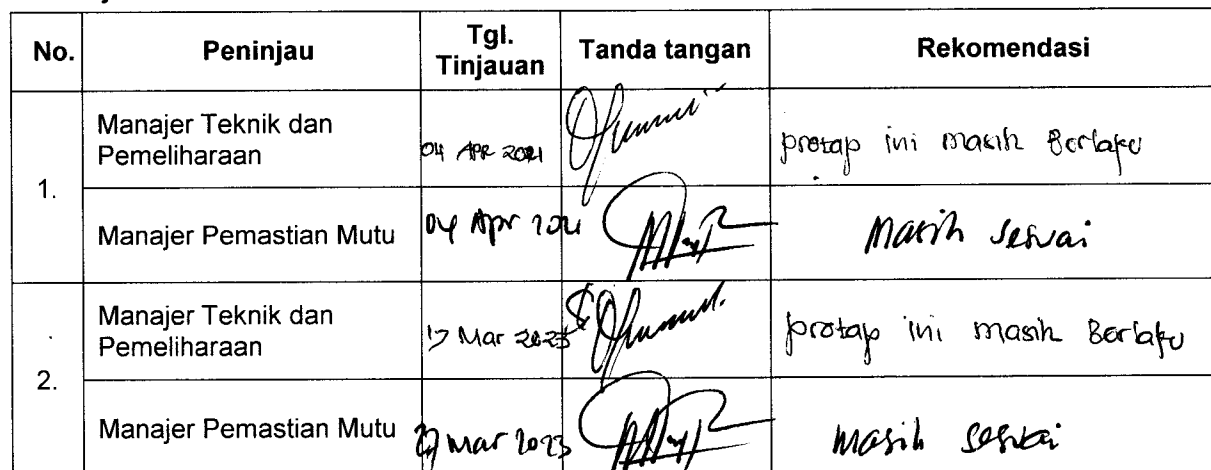 No. Peninjau Tgl. Tinjauan Tanda tangan Rekomendasi
1.
Manajer Teknik dan Pemeliharaan 04 APR 2021 protap ini masih Berlaku
Manajer Pemastian Mutu 04 Apr 2021 Masih sesuai
2.
Manajer Teknik dan Pemeliharaan Mar 2023 protap ini masih Berlaku
Manajer Pemastian Mutu Mar 2023 masih sesuai